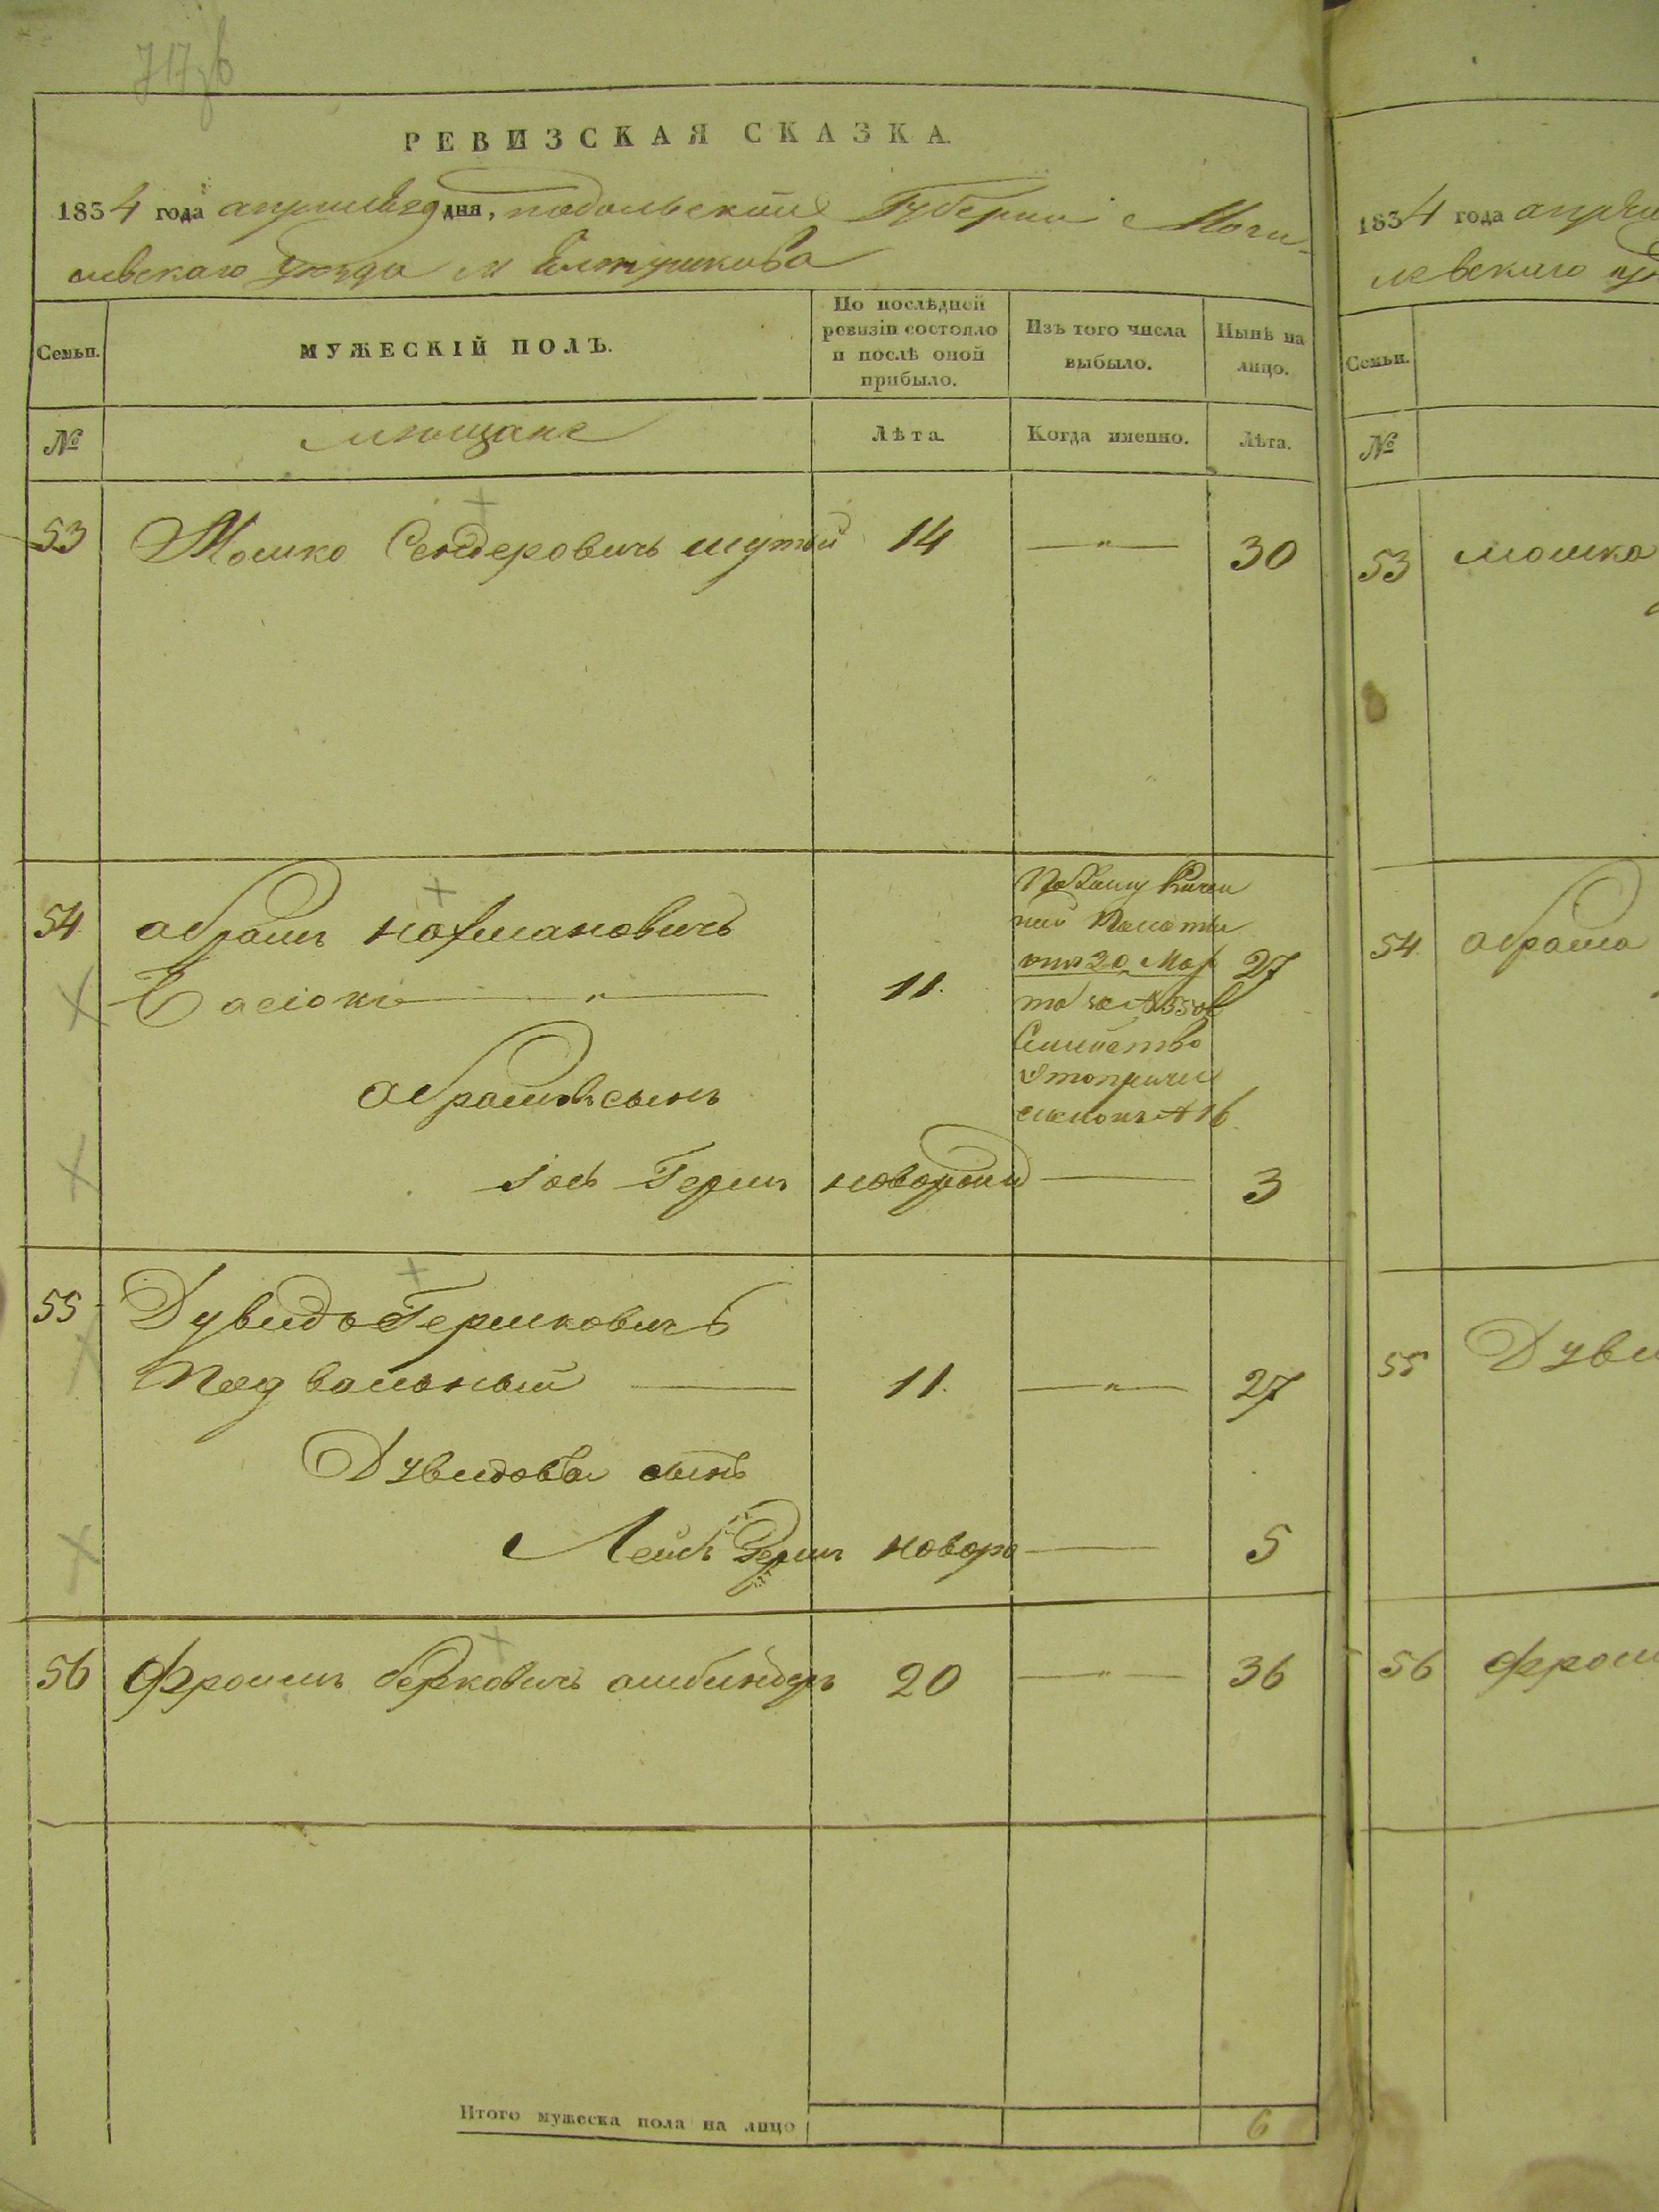 717
РЕВИЗСКАЯ СКАЗКА.
1834 года апреля 29 дня, подольской Губернии Моги-
левскаго уезда м Елтушкова
Семьи.
МУЖЕСКІЙ ПОЛЪ.
По послѣдней ревизіи состояло и послѣ оной прибыло.
Изъ того числа выбыло.
Нынѣ на лицо.
№
мѣщане
Лѣта.
Когда именно.
Лѣта.
53 Мошко Сендеровичъ шутый 14 — " — 30
54 абрамъ нахмановичъ
11. 27
от 20 Мар
Семейство
№ 16
абрамовъ сынъ
Іось Герш новорожд — 3
55 Дувидъ Гершковичъ
Подвальный — 11. — " — 27
Дувидова сынъ
Лейб Герш новоро — 5
56 Фроимъ берковичъ ашбиндеръ 20 — " — 36
Итого мужеска пола на лицо 6
1834 года апре
левскаго
Семьи.
№
53 мошка
54. абрама
55 Дуви
56 фрои